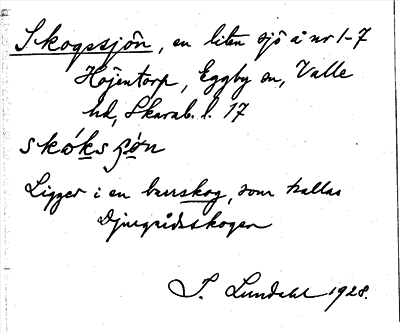 Skogssjön, en liten sjö å nr 1-7
Höjentorp, Eggby sn, Valle
hd, Skarab. l. 17
skóks ʃön
Ligger i en barrskog, som kallas
Djurgårdsskogen
S. Lundahl 1928.